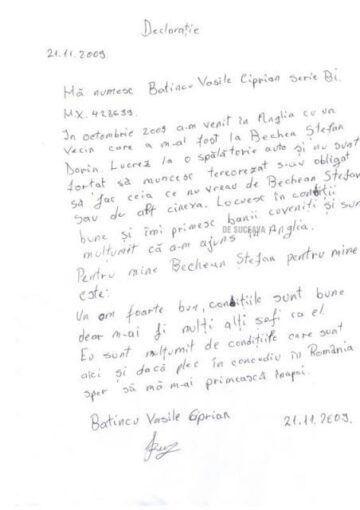 Declarație
21.11.2009
Mă numesc Batincu Vasile Ciprian Serie Bi.
MX. 428639.
În octombrie 2009 a-m venit în Anglia cu un
vecin care a m-ai fost la Bechea Ștefan
Dorin. Lucrez la o spălătorie auto și nu sunt
forțat să muncesc s-au obligat
să fac ceia ce nu vreau de Bechean Ștefan
sau de alt cineva. Locuesc în condiții
bune și îmi primesc banii coveniți și sunt
mulțumit că a-m ajuns Anglia.
DE SUCEAVA
Pentru mine Bechean Ștefan pentru mine
este:
Un om foarte bun, condițiile sunt bune
dear m-ai fi mulți alți șefi ca el.
Eu sunt mulțumit de condițiile care sunt
aici și dacă plec în concediu în România
sper să mă m-ai primească înapoi.
Batincu Vasile Ciprian 21.11.2009.